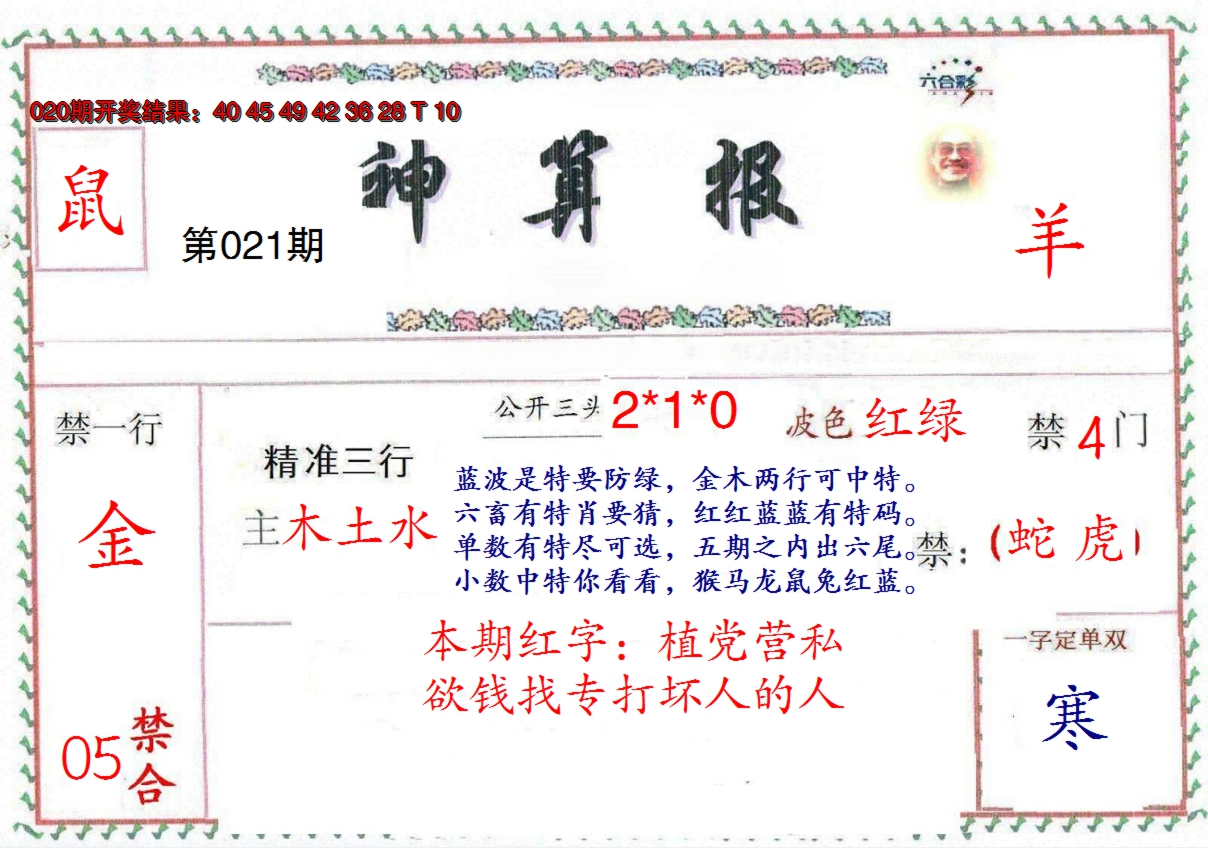 六合彩
020期开奖结果：40 45 49 42 36 28 T 10
鼠
神算报
第021期
羊
禁一行
金
05
禁合
精准三行
主木土水
公开三头 2*1*0
波色 红绿
禁 4 门
蓝波是特要防绿，金木两行可中特。
六畜有特肖要猜，红红蓝蓝有特码。
单数有特尽可选，五期之内出六尾。
小数中特你看看，猴马龙鼠兔红蓝。
禁：（蛇 虎）
本期红字：植党营私
欲钱找专打坏人的人
一字定单双
寒